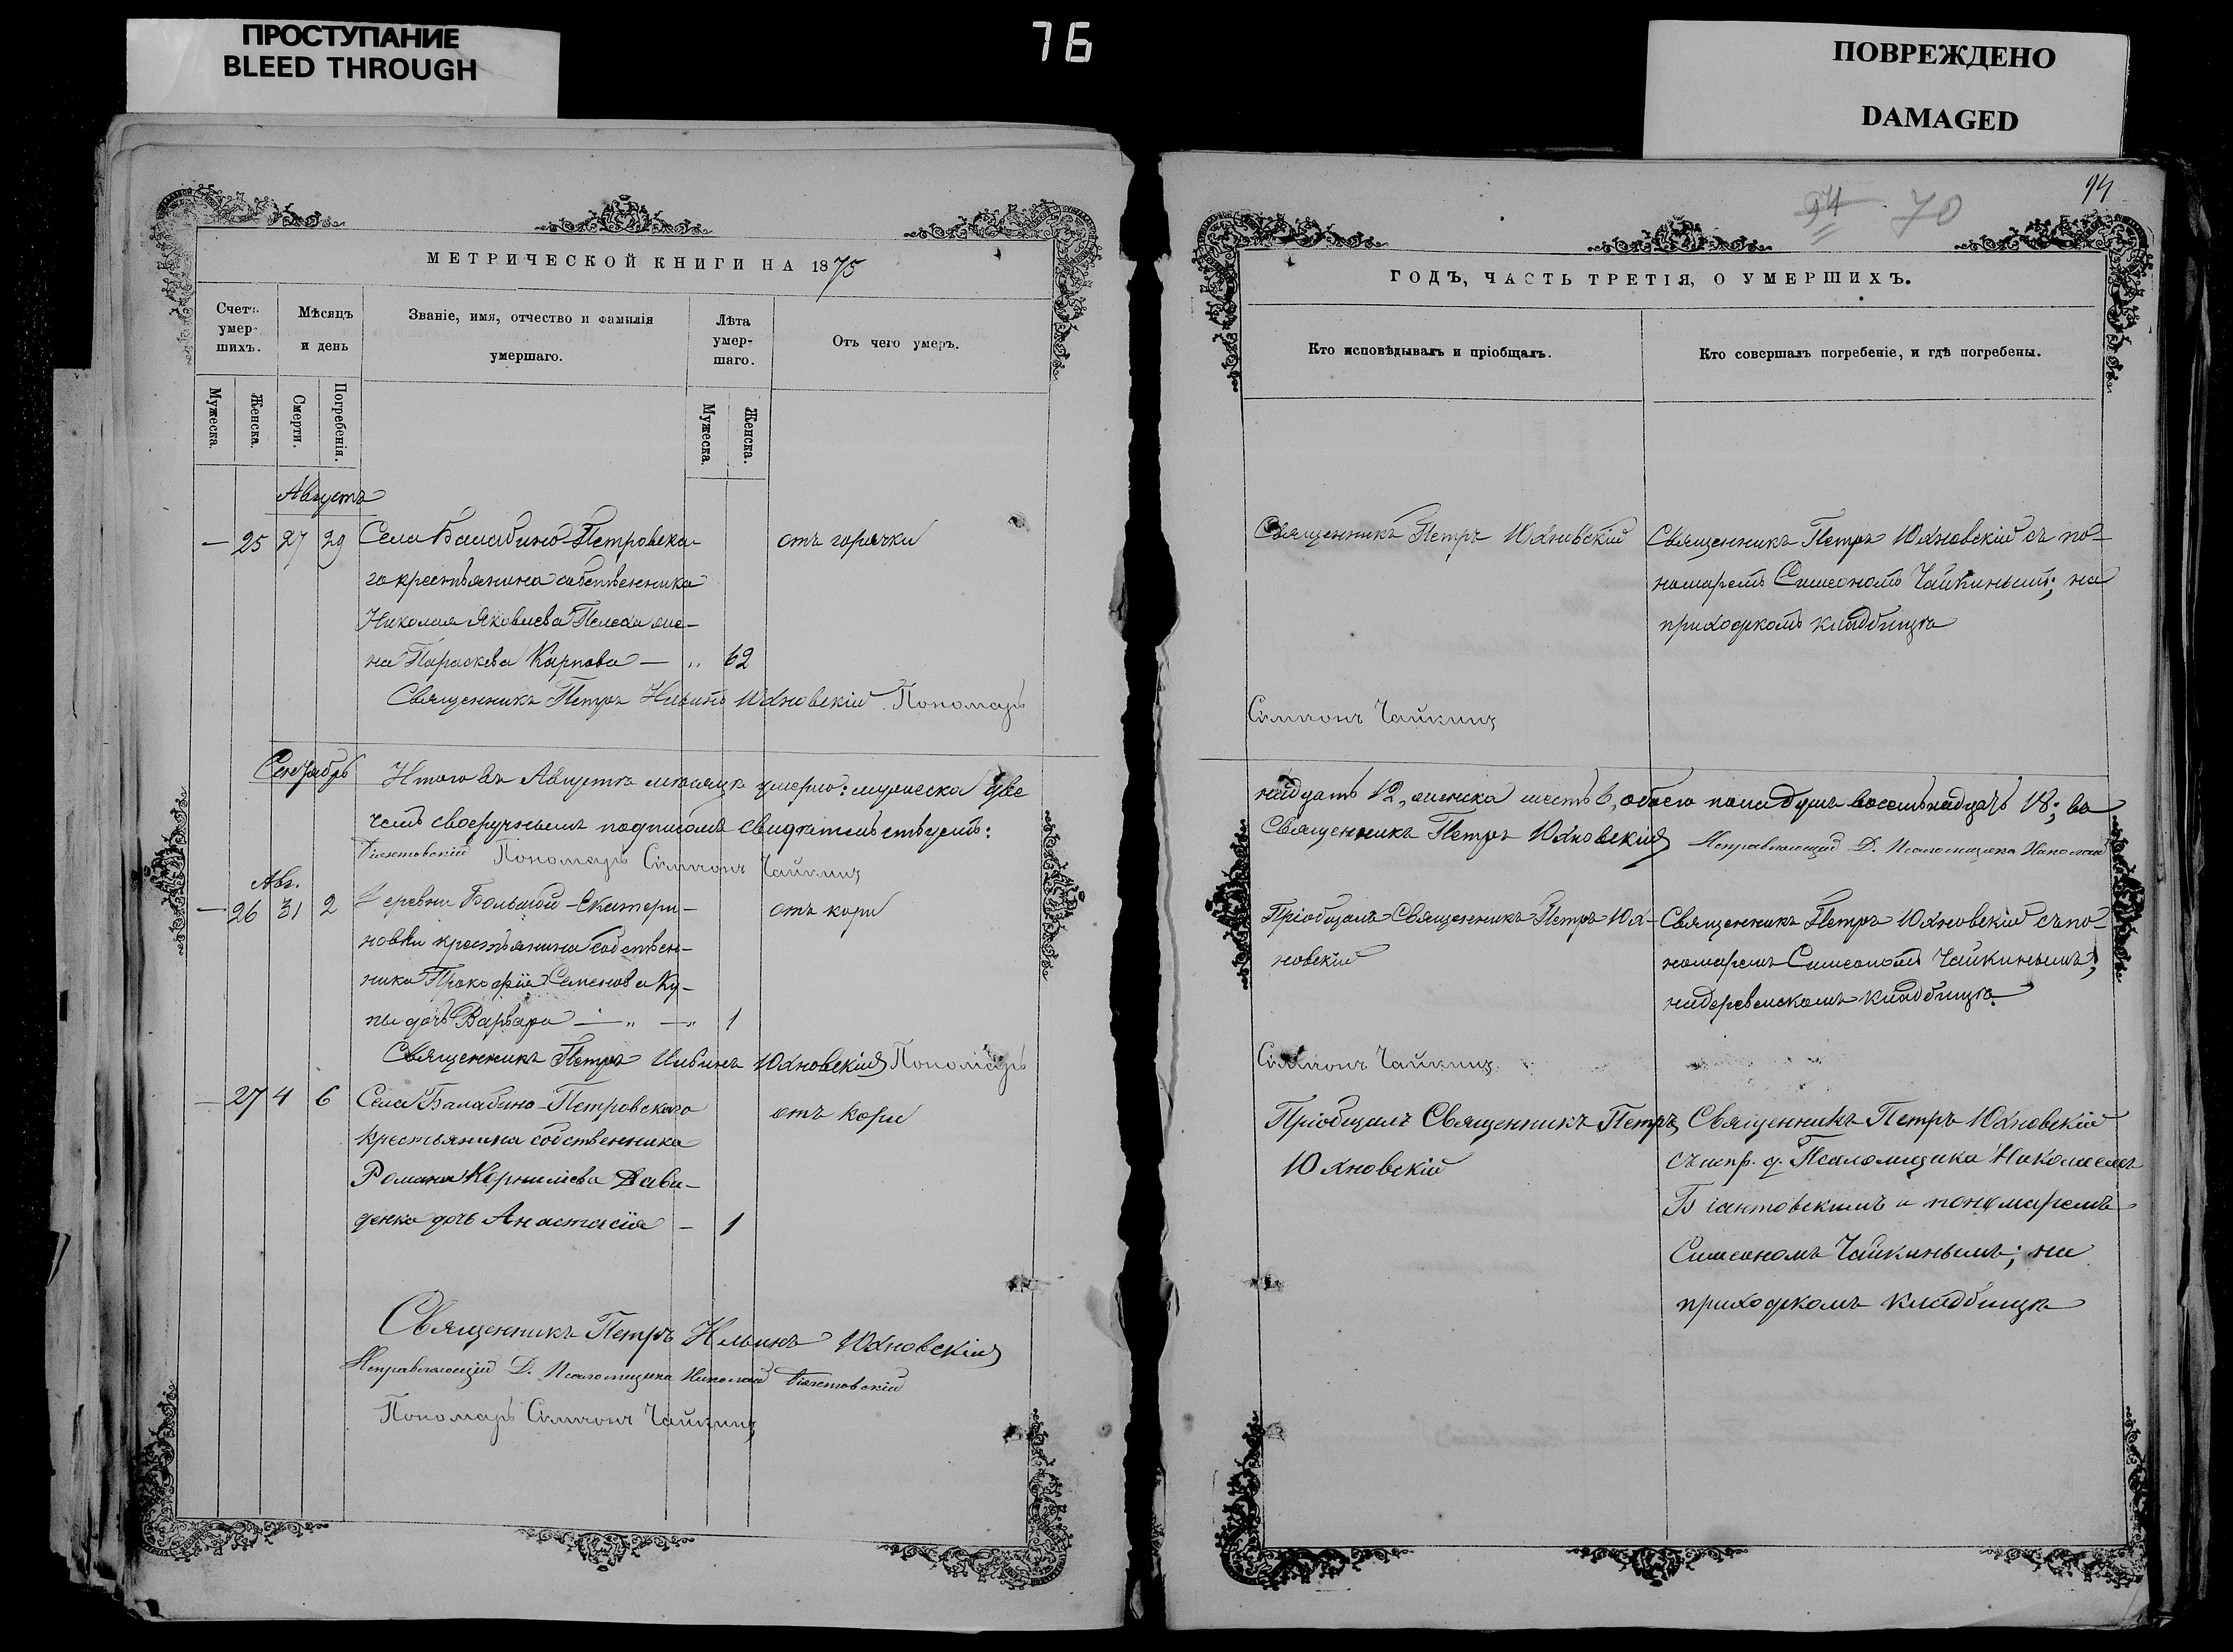 ПРОСТУПАНИЕ
BLEED THROUGH
76
ПОВРЕЖДЕНО
DAMAGED
94
94 70
МЕТРИЧЕСКОЙ КНИГИ НА 1875
Счетъ умер- шихъ.
Мѣсяцъ и день
Званіе, имя, отчество и фамилія умершаго.
Лѣта умер- шаго.
Отъ чего умеръ.
Мужеска.
Женска.
Смерти.
Погребенія.
Мужеска.
Женска.
Августъ
— 25 27 29 Села Балабино-Петровска- отъ горячки
го крестьянина собственника
Николая Яковлева же-
на Параскева Карпова — „ 62
Священникъ Петръ Ильинъ Юхновскій Пономарь
Сентябрь Итого въ Августѣ мѣсяцѣ умерло: мужеска две
чемъ своеручнымъ подписомъ свидѣтельствуемъ:
Біянтовскій Пономарь Симеонъ Чайкинъ
Авг.
— 26 31 2 Деревни Большой-Екатери- отъ кори
новки крестьянина собствен-
ника Прокофія Семенова Ку-
пы дочь Варвара — „ — „ 1
Священникъ Петръ Ильинъ Юхновскій Пономарь
— 27 4 6 Села Балабино-Петровскаго отъ кори
крестьянина собственника
Романа Корнилиева Дави-
денка дочь Анастасія — 1
Священникъ Петръ Ильинъ Юхновскій
Исправляющій Д. Псаломщика Николай Біянтовскій
Пономарь Симеонъ Чайкинъ
ГОДЪ, ЧАСТЬ ТРЕТІЯ, О УМЕРШИХЪ.
Кто исповѣдывалъ и пріобщалъ.
Кто совершалъ погребеніе, и гдѣ погребены.
Священникъ Петръ Юхновскій
Священникъ Петръ Юхновскій съ по-
номаремъ Симеономъ Чайкинымъ; на
приходскомъ кладбищѣ
Симеонъ Чайкинъ
надцать 12, женска шесть 6, обоего пола душъ восемьнадцать 18; въ
Священникъ Петръ Юхновскій Исправляющій Д. Псаломщика Николай
Пріобщалъ Священникъ Петръ Юх-
новскій
Священникъ Петръ Юхновскій съ по-
номаремъ Симеономъ Чайкинымъ;
на деревенскомъ кладбищѣ.
Симеонъ Чайкинъ
Пріобщалъ Священникъ Петръ
Юхновскій
Священникъ Петръ Юхновскій
съ испр. д. Псаломщика Николаемъ
Біянтовскимъ и пономаремъ
Симеономъ Чайкинымъ; на
приходскомъ кладбищѣ